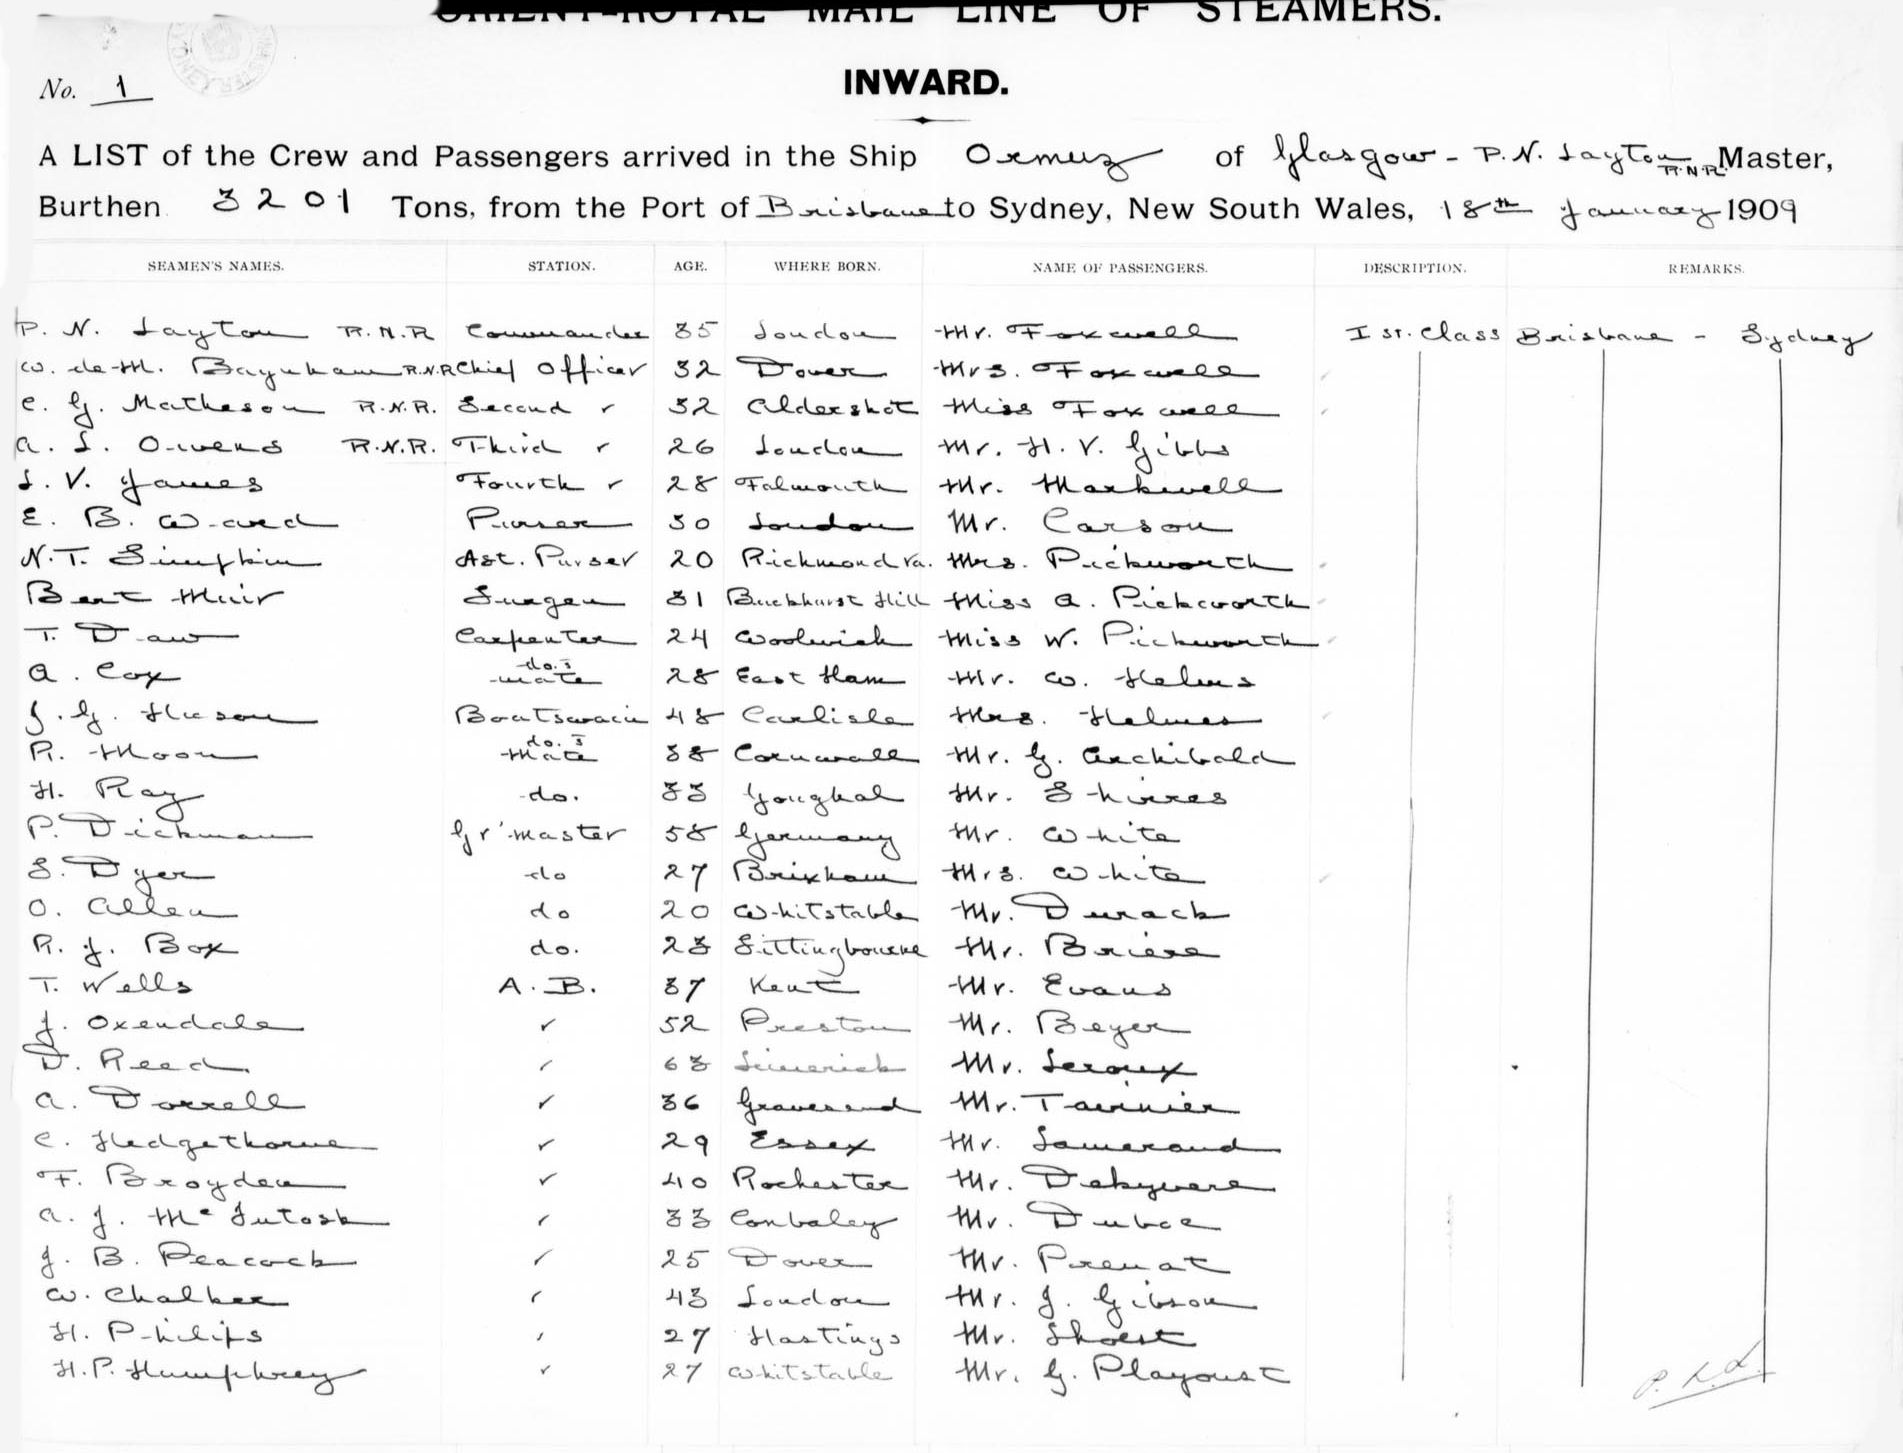 ORIENT-ROYAL MAIL LINE OF STEAMERS.
No. 1
INWARD.
A LIST of the Crew and Passengers arrived in the Ship Ormuz of Glasgow - P. N. Layton R.N.R. Master,
Burthen 3201 Tons, from the Port of Brisbane to Sydney, New South Wales, 18th January 1909
SEAMEN'S NAMES. STATION. AGE. WHERE BORN. NAME OF PASSENGERS. DESCRIPTION. REMARKS.
P. N. Layton R.N.R Commander 35 London Mr. Foxwell 1st. Class Brisbane - Sydney
W. de M. Baynham R.N.R Chief Officer 32 Dover Mrs. Foxwell
C. G. Matheson R.N.R. Second " 32 Aldershot Miss Foxwell
A. L. Owens R.N.R. Third " 26 London Mr. H. V. Gibbs
L. V. James Fourth " 28 Falmouth Mr. Markwell
E. B. Ward Purser 30 London Mr. Carson
N. T. Simpkin Ast. Purser 20 Richmond Va. Mrs. Pickworth
Bert Muir Surgeon 31 Buckhurst Hill Miss A. Pickworth
T. Daw Carpenter 24 Woolwich Miss W. Pickworth
A. Cox do.s mate 28 East Ham Mr. W. Helms
J. G. Hewson Boatswain 48 Carlisle Mrs. Helmes
R. Moon do.s mate 38 Cornwall Mr. G. Archibald
H. Ray do. 33 Youghal Mr. Shirres
P. Dickman Qr' master 58 Germany Mr. White
S. Dyer do 27 Brixham Mrs. White
O. Allen do 20 Whitstable Mr. Durack
R. J. Box do. 23 Sittingbourne Mr. Briere
T. Wells A.B. 37 Kent Mr. Evans
J. Oxendale " 52 Preston Mr. Beyer
D. Reed. " 63 Limerick Mr. Leroux
A. Dorrell " 36 Gravesend Mr. Tavinier
C. Hedgethorne " 29 Essex Mr. Lamerand
F. Broyden " 40 Rochester Mr. Dekyvere
A. J. McIntosh " 33 Mr.
J. B. Peacock " 25 Dover Mr. Prenat
W. Chalker " 43 London Mr. J. Gibson
H. Philips " 27 Hastings Mr. Short
H. P. Humphrey " 27 Whitstable Mr. G. Playoust